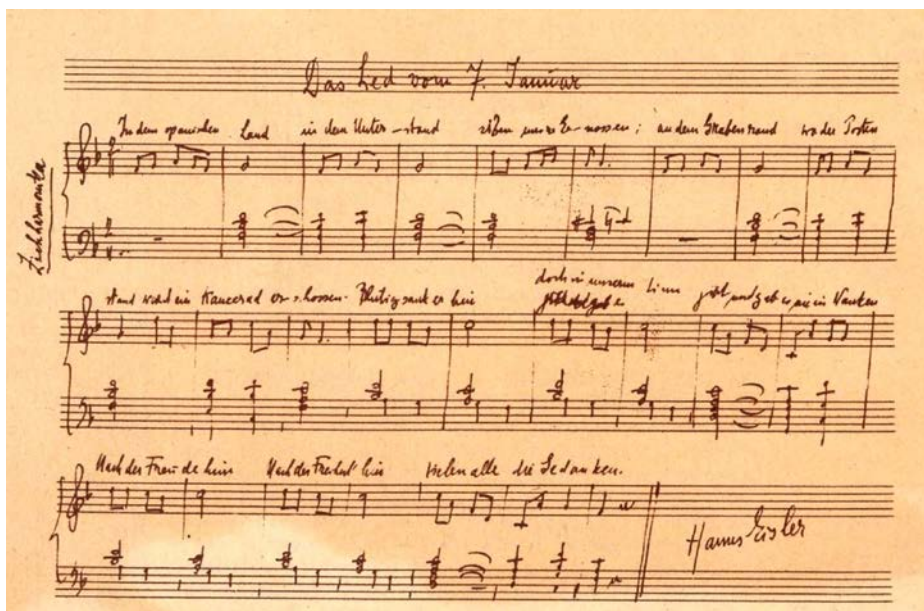 Das Lied vom 7. Januar
In dem spanischen Land in dem Unter-stand an dem Grabenrand wo der Posten
Ziehharmonika
stand wird ein Kamerad er-schossen. Blutig sank er hin doch in unserem Sinn gibt und gab es nie ein Wanken
Nach der Freude hin Nach der Freiheit hin vielen alle die Gedanken.
Hanns Eisler